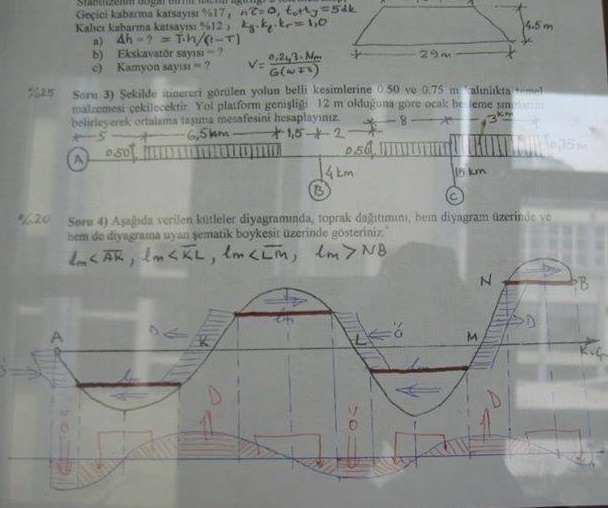 Geçici kabarma katsayısı %17, nT=0, t₀+tj=5dk
Kalıcı kabarma katsayısı %12, kg.kç.kr=1,0
a) Δh=? = T.h/(1-T)
b) Ekskavatör sayısı = ?
c) Kamyon sayısı = ?
4.5m
29m
%25 Soru 3) Şekilde itinereri görülen yolun belli kesimlerine 0.50 ve 0.75 m kalınlıkta temel
malzemesi çekilecektir. Yol platform genişliği 12 m olduğuna göre ocak besleme sınırlarını
belirleyerek ortalama taşıma mesafesini hesaplayınız.
5 6,5km 1,5 2 8 3km
A 0,50 0,50 0,75m
4km
B
C
%20 Soru 4) Aşağıda verilen kütleler diyagramında, toprak dağıtımını, hem diyagram üzerinde ve
hem de diyagrama uyan şematik boykesit üzerinde gösteriniz.
lm<AK, lm<KL, lm<LM, lm>NB
A D K lm L Ö M N D B
Ö lm lm
Ö D Ö D